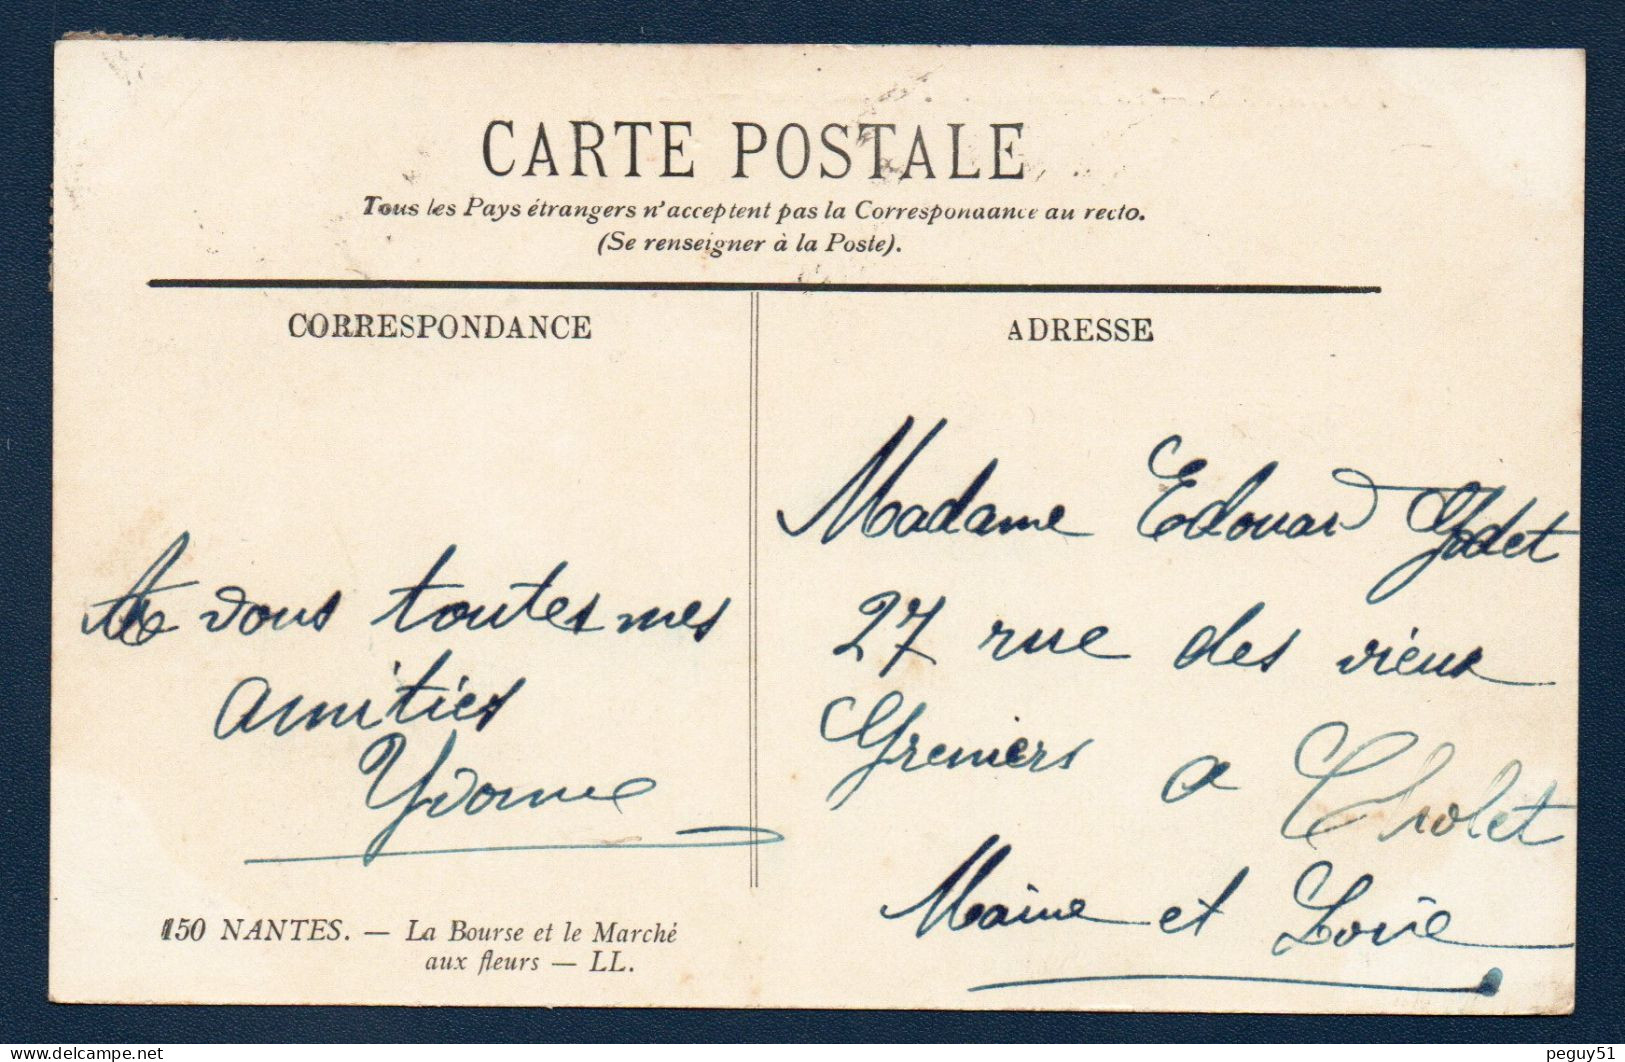 CARTE POSTALE
Tous les Pays étrangers n'acceptent pas la Correspondance au recto.
(Se renseigner à la Poste).
CORRESPONDANCE
ADRESSE
A vous toutes mes
amitiés
Yvonne
Madame Edouard Godet
27 rue des vieux
Greniers a Cholet
Maine et Loire
150 NANTES. — La Bourse et le Marché
aux fleurs — LL.
delcampe.net
peguy51